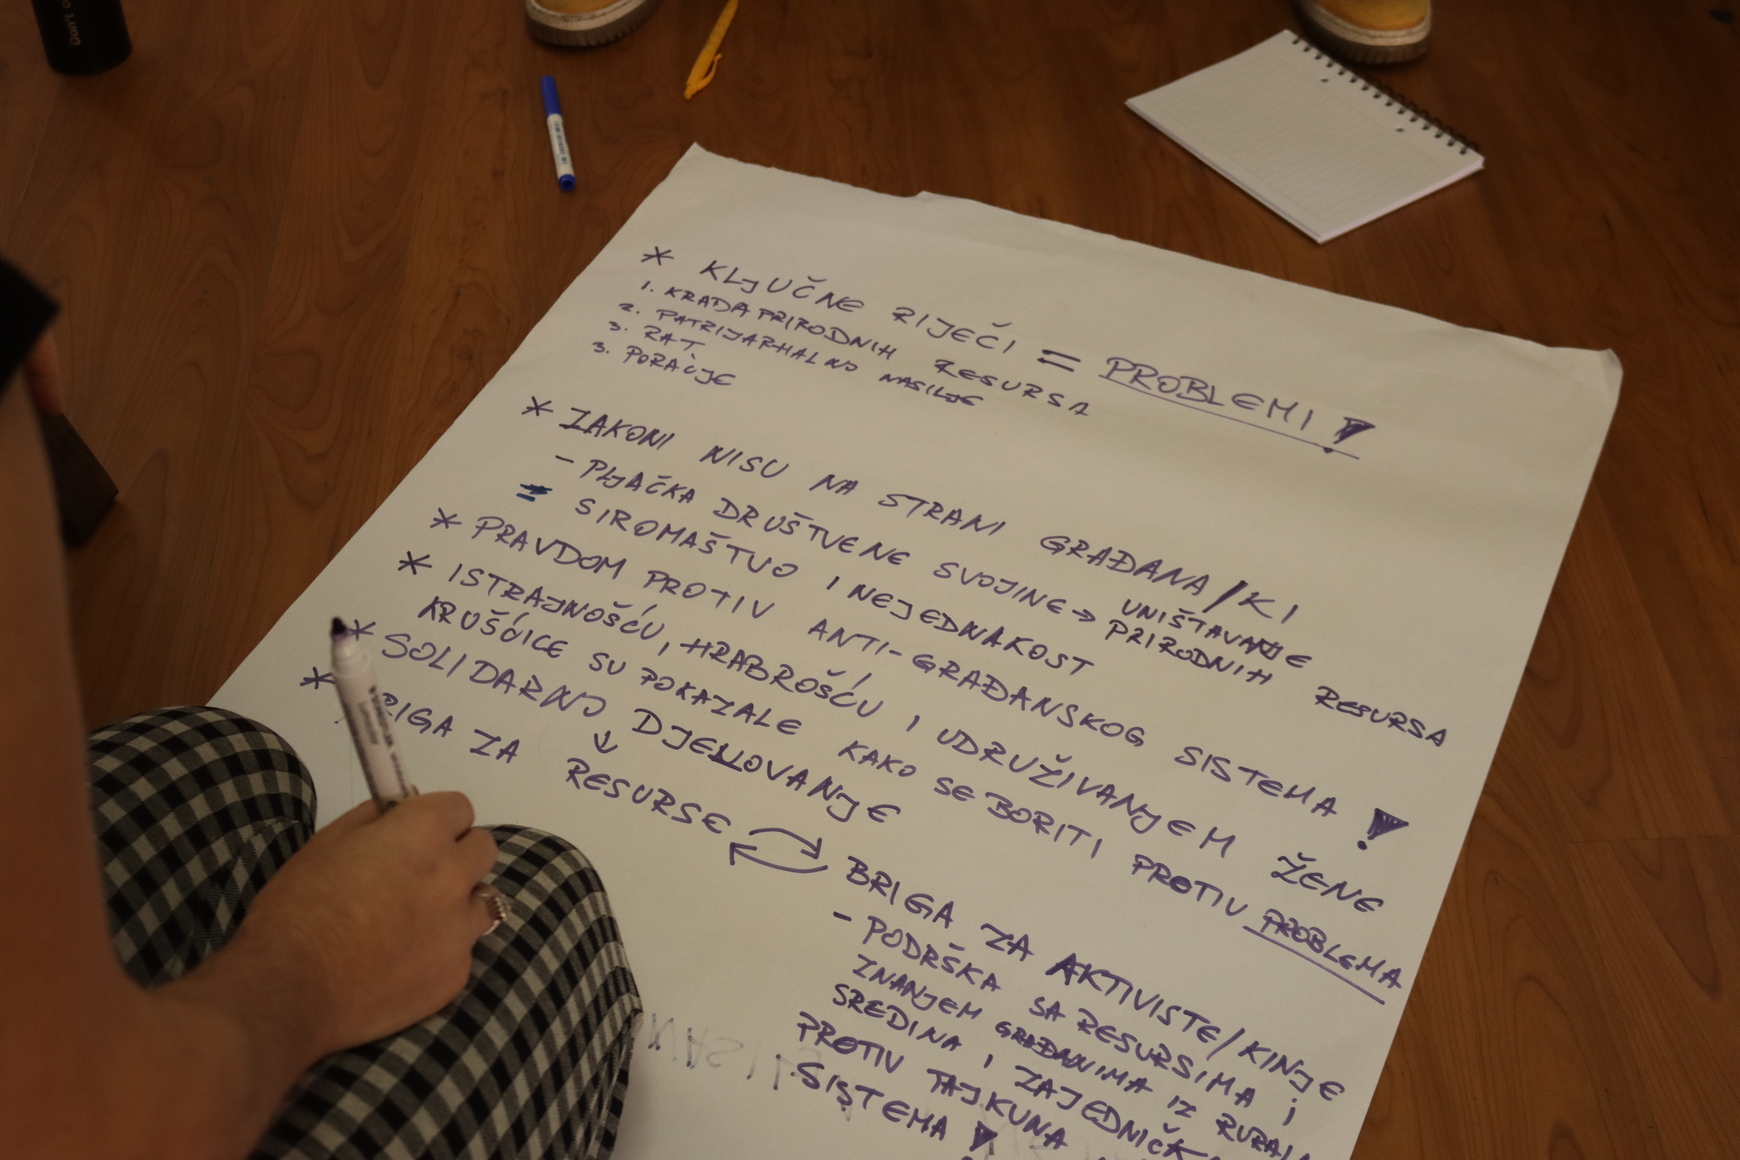 Don't
* KLJUČNE RIJEČI = PROBLEMI !
1. KRAĐA PRIRODNIH RESURSA
2. PATRIJARHALNO NASILJE
3. RAT
3. PORAĆJE
* ZAKONI NISU NA STRANI GRAĐANA/KI
- PLJAČKA DRUŠTVENE SVOJINE → UNIŠTAVANJE
PRIRODNIH RESURSA
= SIROMAŠTVO I NEJEDNAKOST
* PRAVDOM PROTIV ANTI-GRAĐANSKOG SISTEMA !
* ISTRAJNOŠĆU, HRABROŠĆU I UDRUŽIVANJEM ŽENE
KRUŠĆICE SU POKAZALE KAKO SE BORITI PROTIV PROBLEMA
* SOLIDARNO DJELOVANJE
↓
* BRIGA ZA RESURSE ⇄ BRIGA ZA AKTIVISTE/KINJE
- PODRŠKA SA RESURSIMA I
ZNANJEM GRAĐANIMA IZ
SREDINA I
PROTIV TAJKUNA
SISTEMA !